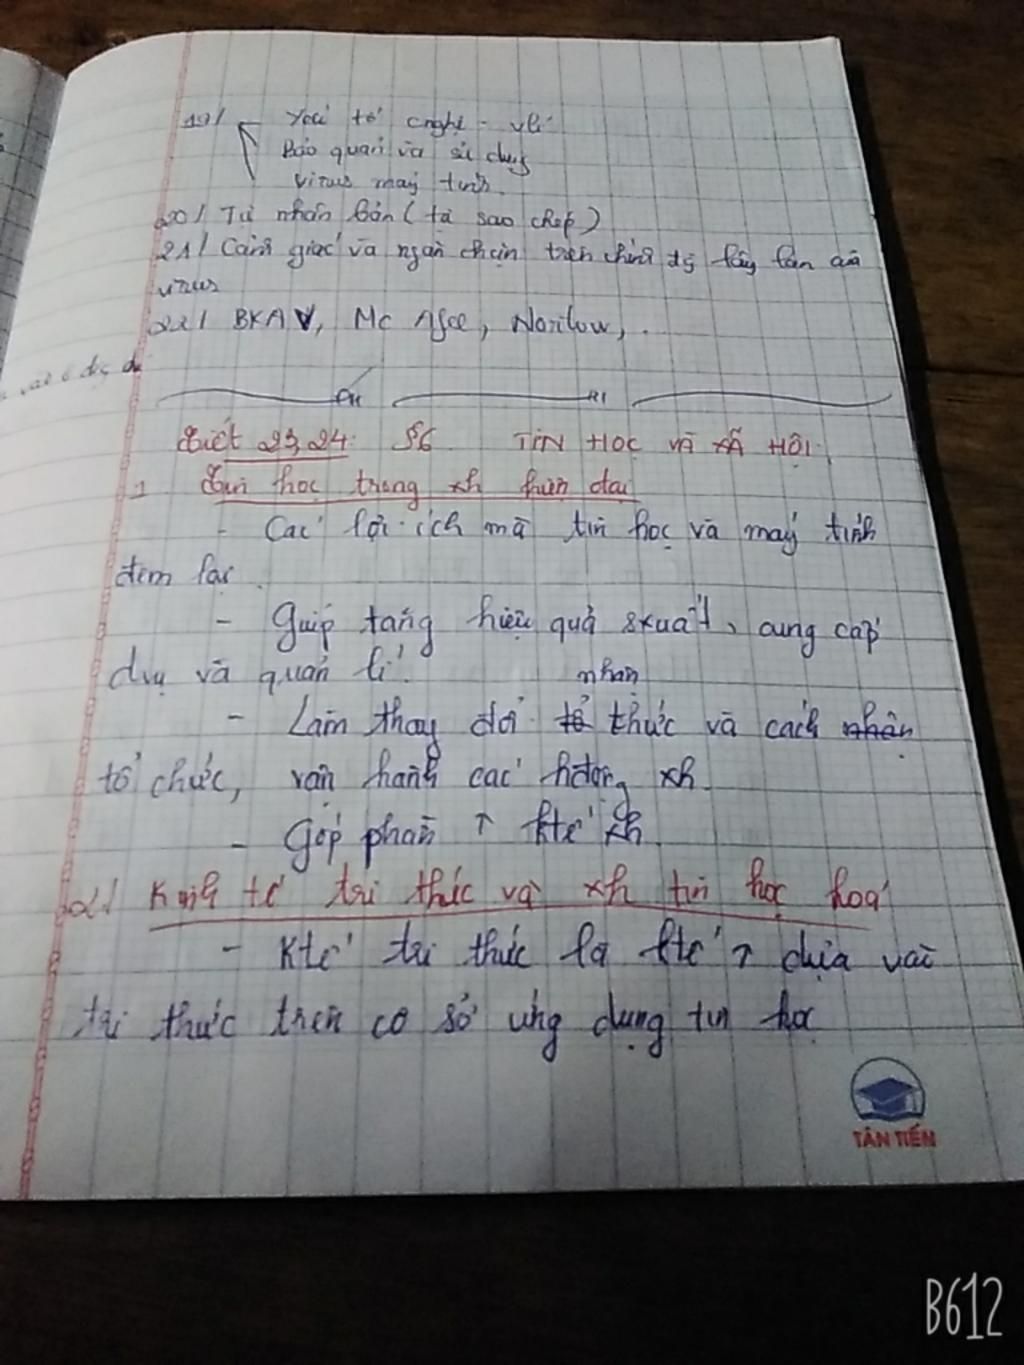 19/ - Yếu tố cnghệ - vlí
Bảo quản và sử dụng
Virus máy tính.
20/ Tự nhân bản (tự sao chép)
21/ Cảnh giác và ngăn chặn trên chính đg lây lan của
virus
22/ BKAV, Mc Afee, Norton, .
Tiết 23,24: §6 TIN HỌC VÀ XÃ HỘI.
1 Tin học trong xh hiện đại
- Các lợi ích mà tin học và máy tính
đem lại.
- Giúp tăng hiệu quả sxuất, cung cấp
dvụ và quản lí.
nhận
- Làm thay đổi tổ thức và cách nhận
tổ chức, vận hành các hđộng xh.
- Góp phần ↑ ktế xh.
2/ Kinh tế tri thức và xh tin học hoá
- Ktế tri thức là ktế ↑ dựa vào
tri thức trên cơ sở ứng dụng tin học
TÂN TIẾN
B612